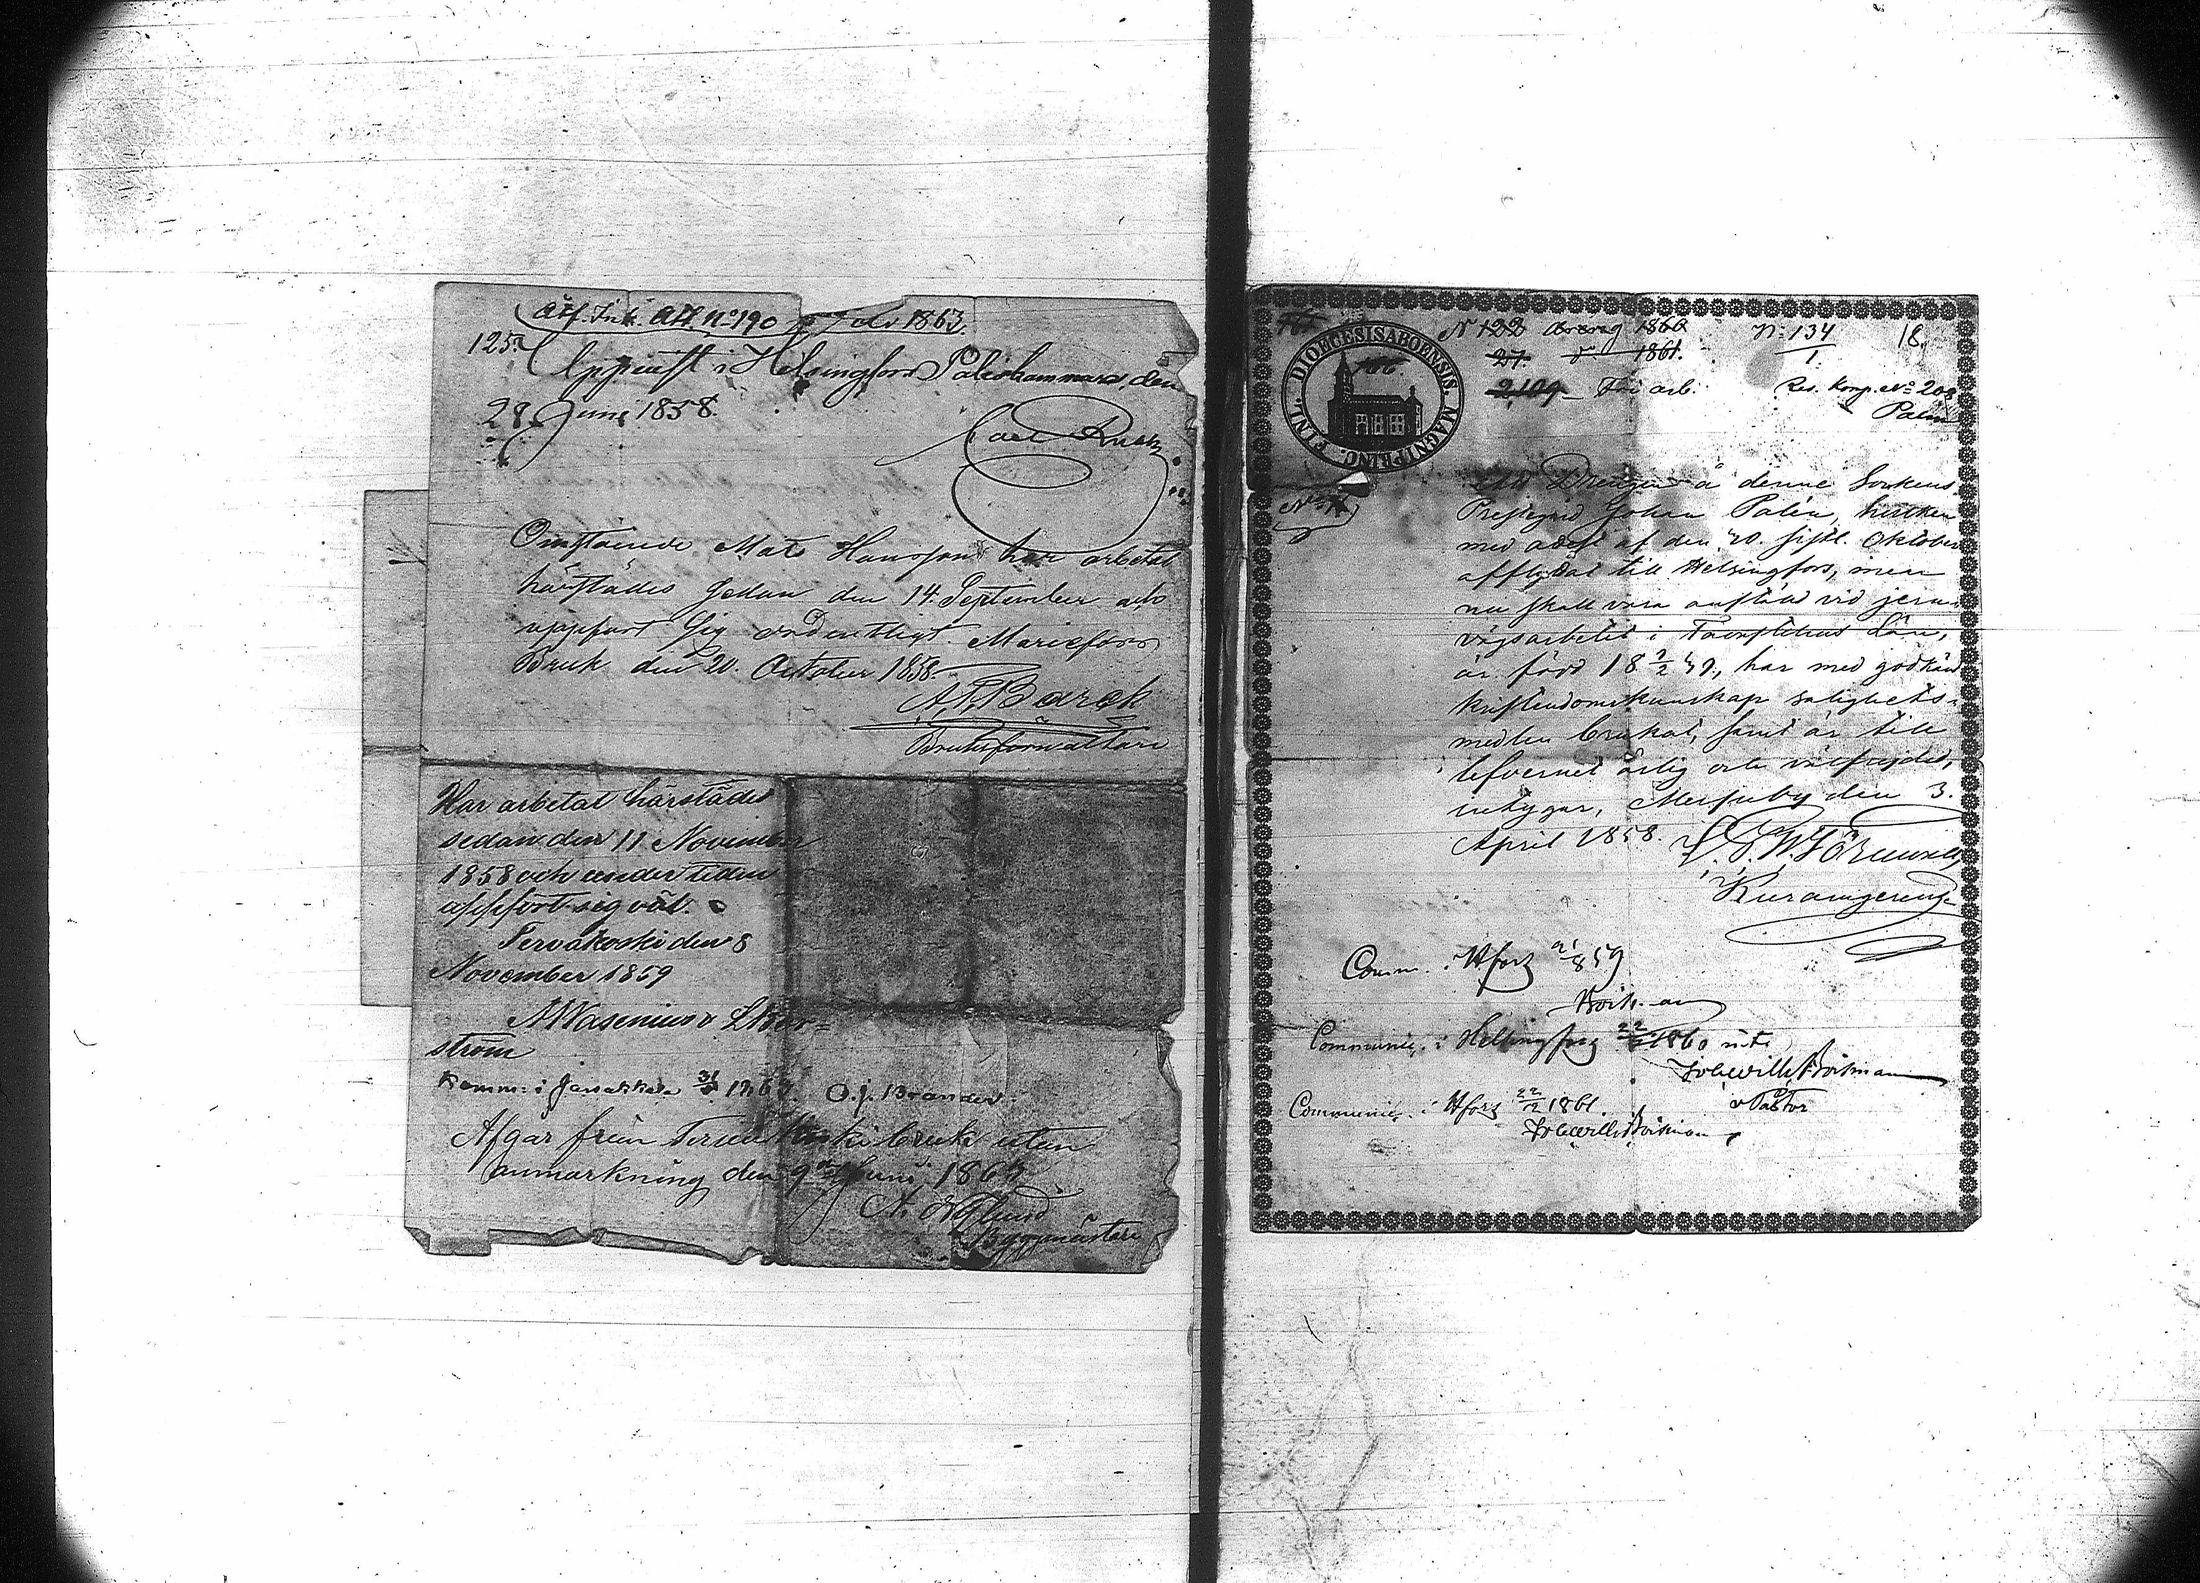 Att. Ink. Att. No 190 för 1863.
125.
Uppvist i Helsingfors Poliskammare, den
28 Juni 1858.
Carl
Omstående Mats Hansson har arbetat
härstädes sedan den 14 September och
uppfört sig ordentligt. Mariefors
Bruk den 20. October 1858.
Bruksförvaltare
Har arbetat härstädes
sedan den 11 November
1858 och under tiden
uppfört sig väl.
Tervakoski den 8
November 1859
A Wasenius &
ström
Komm: i Janakkala O. j. Brander.
Afgår från Tervakoski bruk utan
anmärkning den 9 Juni 186
Byggmästare
DIOECESIS ABOENSIS. MAGNI PRINC. FINL.
N 122 1860
27. do 1861.
2,109 För arb.
N: 134
1.
18.
Res. Konp. No 208
Palin
No 1
Att Drengen å denne Sockens
Johan Palén, hvilken
med af den 20. sistl. Oktober
afflyttat till Helsingfors, men
nu skall vara anstäld vid jern-
vägsarbetet i Tavastehus Län,
är född 18, har med godkänd
kristendomskunskap salighets-
medlen brukat, samt är till
lefvernet ärlig och välfrejdad,
intygar, Messuby den 3.
April 1858.
Comm. i Hfors 59
Boisman
Communic. i Helsingfors 1860
Boisman
v Pastor
Communic. i Hfors 22/12 1861.
Boisman